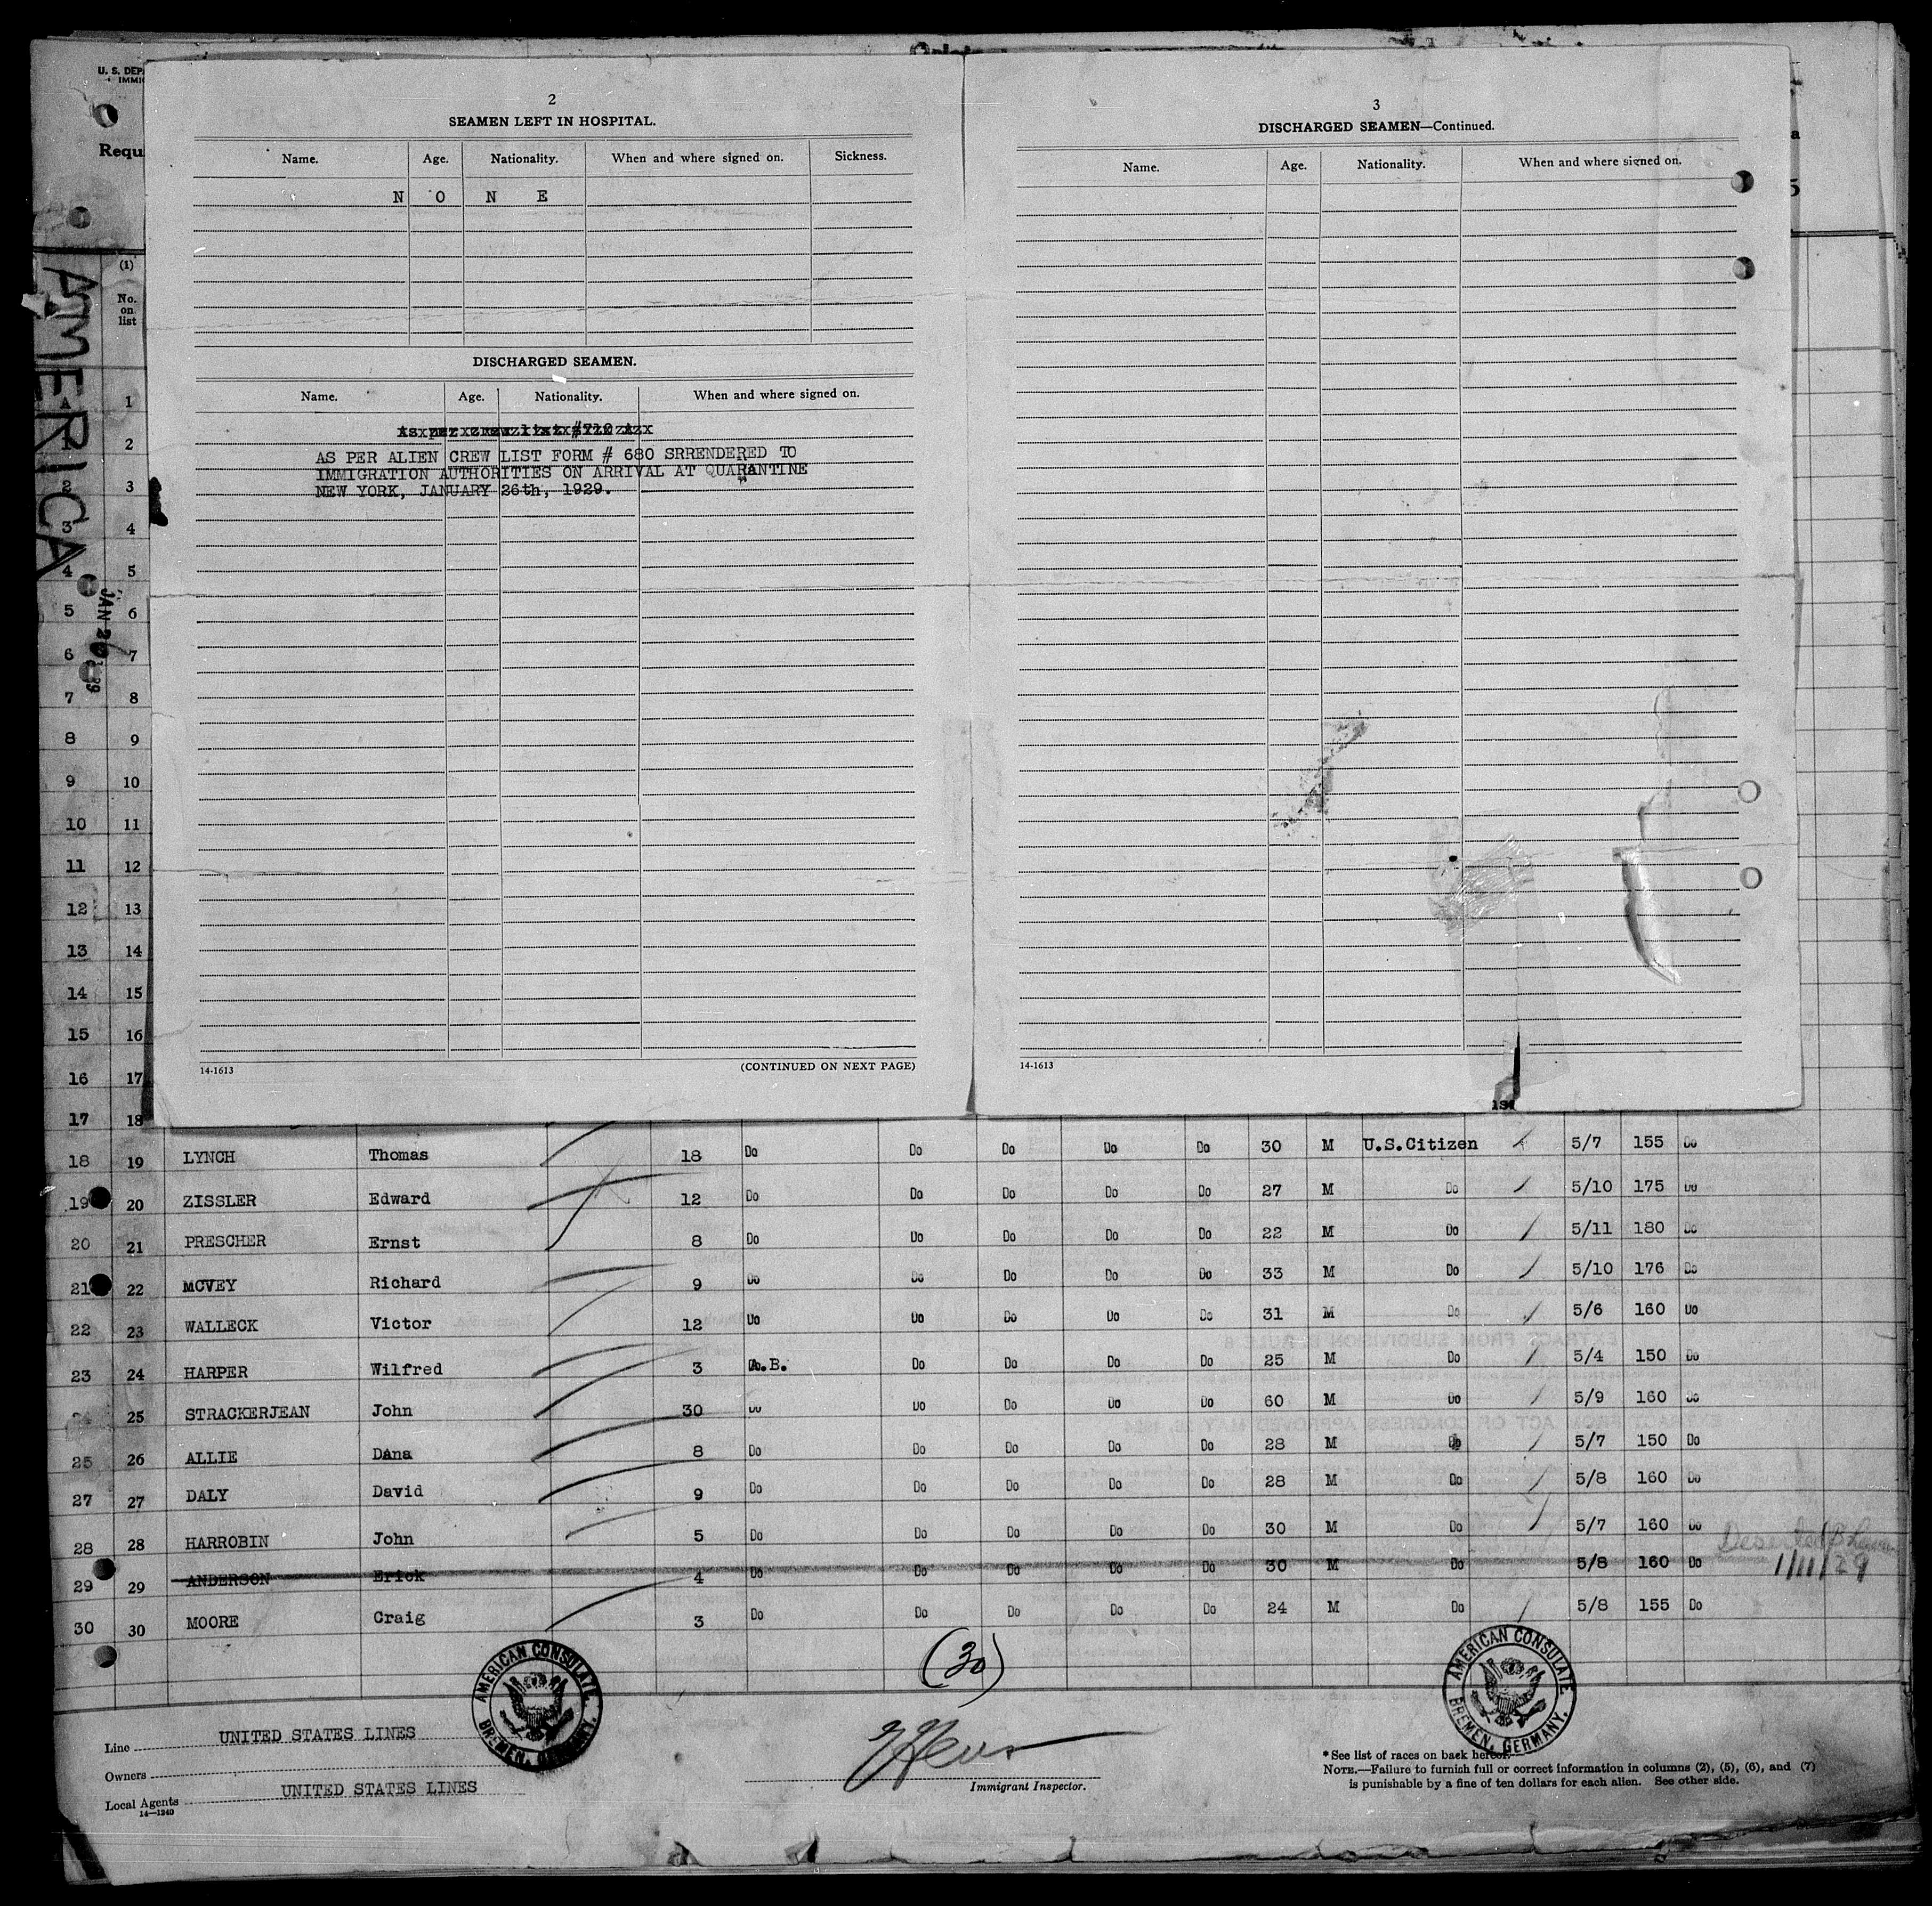 U. S. DEP
IMMIG
Requ
AMERICA
JAN 26 1929
(1)
No. on list
2
SEAMEN LEFT IN HOSPITAL.
Name. Age. Nationality. When and where signed on. Sickness.
N O N E
DISCHARGED SEAMEN.
Name. Age. Nationality. When and where signed on.
AS PER ALIEN CREW LIST FORM # 680 SRRENDERED TO
IMMIGRATION AUTHORITIES ON ARRIVAL AT QUARANTINE
NEW YORK, JANUARY 26th, 1929.
14-1613 (CONTINUED ON NEXT PAGE)
3
DISCHARGED SEAMEN—Continued.
Name. Age. Nationality. When and where signed on.
14-1613
1
1 2
2 3
3 4
4 5
5 6
6 7
7 8
8 9
9 10
10 11
11 12
12 13
13 14
14 15
15 16
16 17
17 18
18 19 LYNCH Thomas 18 Do Do Do Do Do 30 M U.S.Citizen 5/7 155 Do
19 20 ZISSLER Edward 12 Do Do Do Do Do 27 M Do 5/10 175 Do
20 21 PRESCHER Ernst 8 Do Do Do Do Do 22 M Do 5/11 180 Do
21 22 MCVEY Richard 9 Do Do Do Do Do 33 M Do 5/10 176 Do
22 23 WALLECK Victor 12 Do Do Do Do Do 31 M Do 5/6 160 Do
23 24 HARPER Wilfred 3 A.B. Do Do Do Do 25 M Do 5/4 150 Do
24 25 STRACKERJEAN John 30 Do Do Do Do Do 60 M Do 5/9 160 Do
25 26 ALLIE Dana 8 Do Do Do Do Do 28 M Do 5/7 150 Do
27 27 DALY David 9 Do Do Do Do Do 28 M Do 5/8 160 Do
28 28 HARROBIN John 5 Do Do Do Do Do 30 M Do 5/7 160 Do
29 29 ANDERSON Erick 4 Do Do Do Do Do 30 M Do 5/8 160 Do Deserted 1/11/29
30 30 MOORE Craig 3 Do Do Do Do Do 24 M Do 5/8 155 Do
(30)
AMERICAN CONSULATE. BREMEN, GERMANY.
AMERICAN CONSULATE. BREMEN, GERMANY.
Line UNITED STATES LINES
Owners
Local Agents UNITED STATES LINES
14—1240
Immigrant Inspector.
* See list of races on back hereof.
NOTE.—Failure to furnish full or correct information in columns (2), (5), (6), and (7)
is punishable by a fine of ten dollars for each alien. See other side.